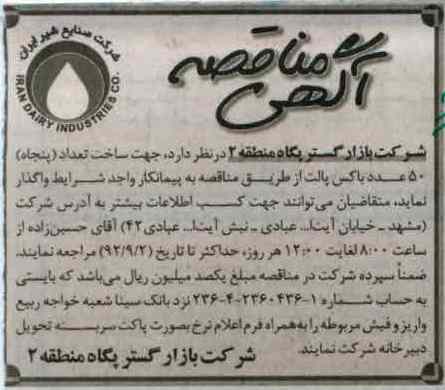 شرکت صنایع شیر ایران
IRAN DAIRY INDUSTRIES CO.
آگهی مناقصه
شرکت بازار گستر پگاه منطقه ۲ در نظر دارد، جهت ساخت تعداد (پنجاه)
۵۰ عدد باکس پالت از طریق مناقصه به پیمانکار واجد شرایط واگذار
نماید، متقاضیان می‌توانند جهت کسب اطلاعات بیشتر به آدرس شرکت
(مشهد - خیابان آیت‌ا... عبادی - نبش آیت‌ا... عبادی ۴۲) آقای حسین‌زاده از
ساعت ۸:۰۰ لغایت ۱۲:۰۰ هر روز، حداکثر تا تاریخ (۹۲/۹/۲) مراجعه نمایند.
ضمناً سپرده شرکت در مناقصه مبلغ یکصد میلیون ریال می‌باشد که بایستی
به حساب شماره ۱-۲۳۶۰۴۳۶-۴-۲۳۶ نزد بانک سینا شعبه خواجه ربیع
واریز و فیش مربوطه را به همراه فرم اعلام نرخ بصورت پاکت سربسته تحویل
دبیرخانه شرکت نمایند.
شرکت بازار گستر پگاه منطقه ۲